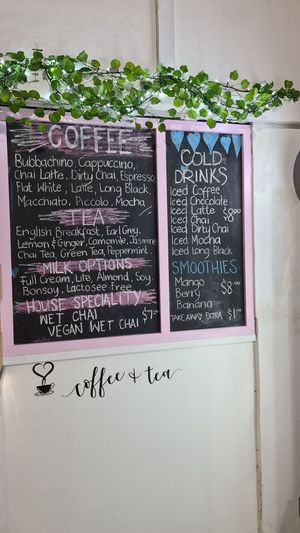 COFFEE
Bubbachino, Cappuccino,
Chai Latte, Dirty Chai, Espresso
Flat White, Latte, Long Black,
Macchiato, Piccolo, Mocha
TEA
English Breakfast, Earl Grey,
Lemon & Ginger, Camomile, Jasmine
Chai Tea, Green Tea, Peppermint
MILK OPTIONS
Full Cream, Lite, Almond, Soy,
Bonsoy, Lactosee free
HOUSE SPECIALITY
WET CHAI
VEGAN WET CHAI $7.
COLD
DRINKS
Iced Coffee
Iced Chocolate
Iced Latte $8.00
Iced Chai
Iced Dirty Chai
Iced Mocha
Iced Long Black
SMOOTHIES
Mango
Berry $8.00
Banana
TAKE AWAY EXTRA $1.
coffee + tea